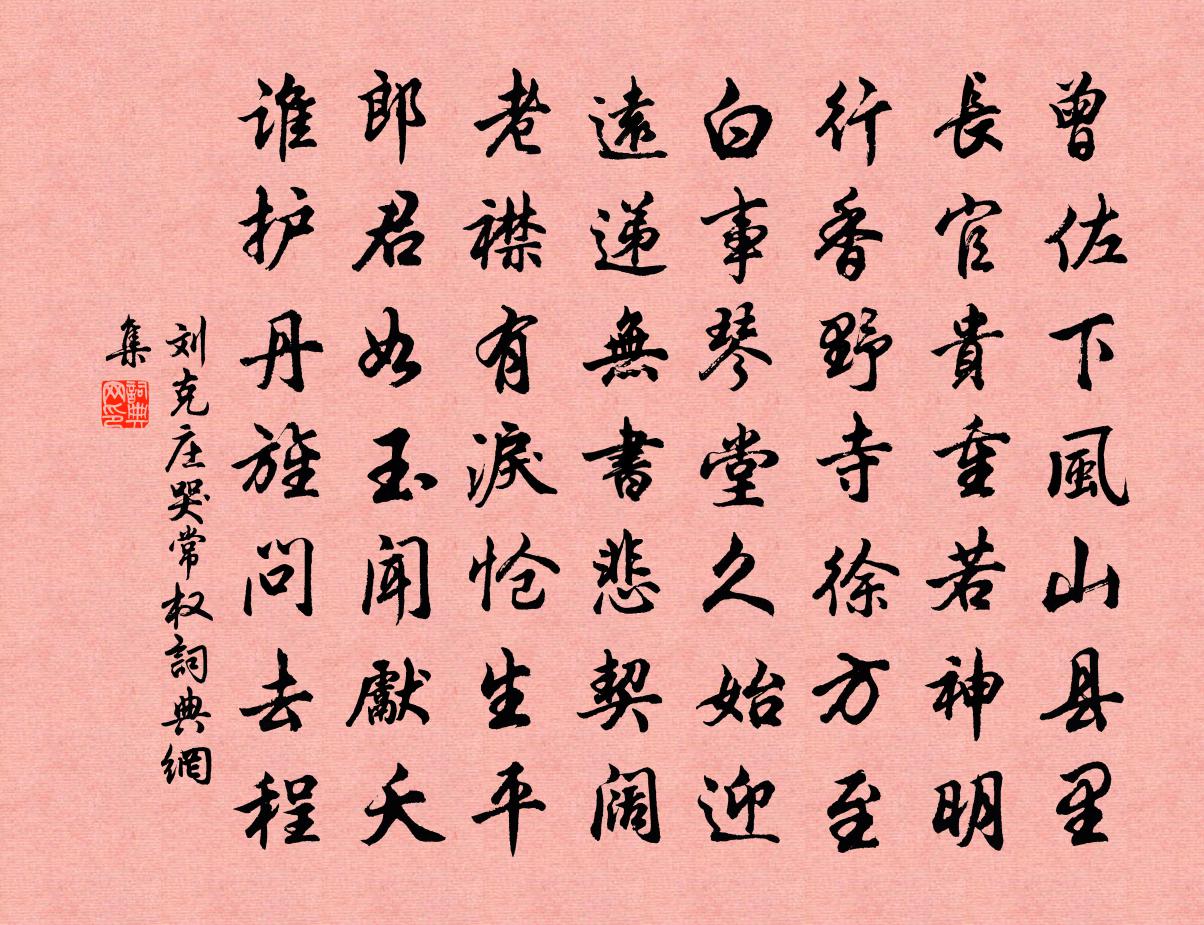 曾佐下風山县里
長官貴重若神明
行香野寺徐方至
白事琴堂久始迎
遠递無書悲契阔
老襟有淚怆生平
郎君如玉闻獻夭
谁护丹旌问去程
刘克庄哭常权詞典網
集
詞典
网印